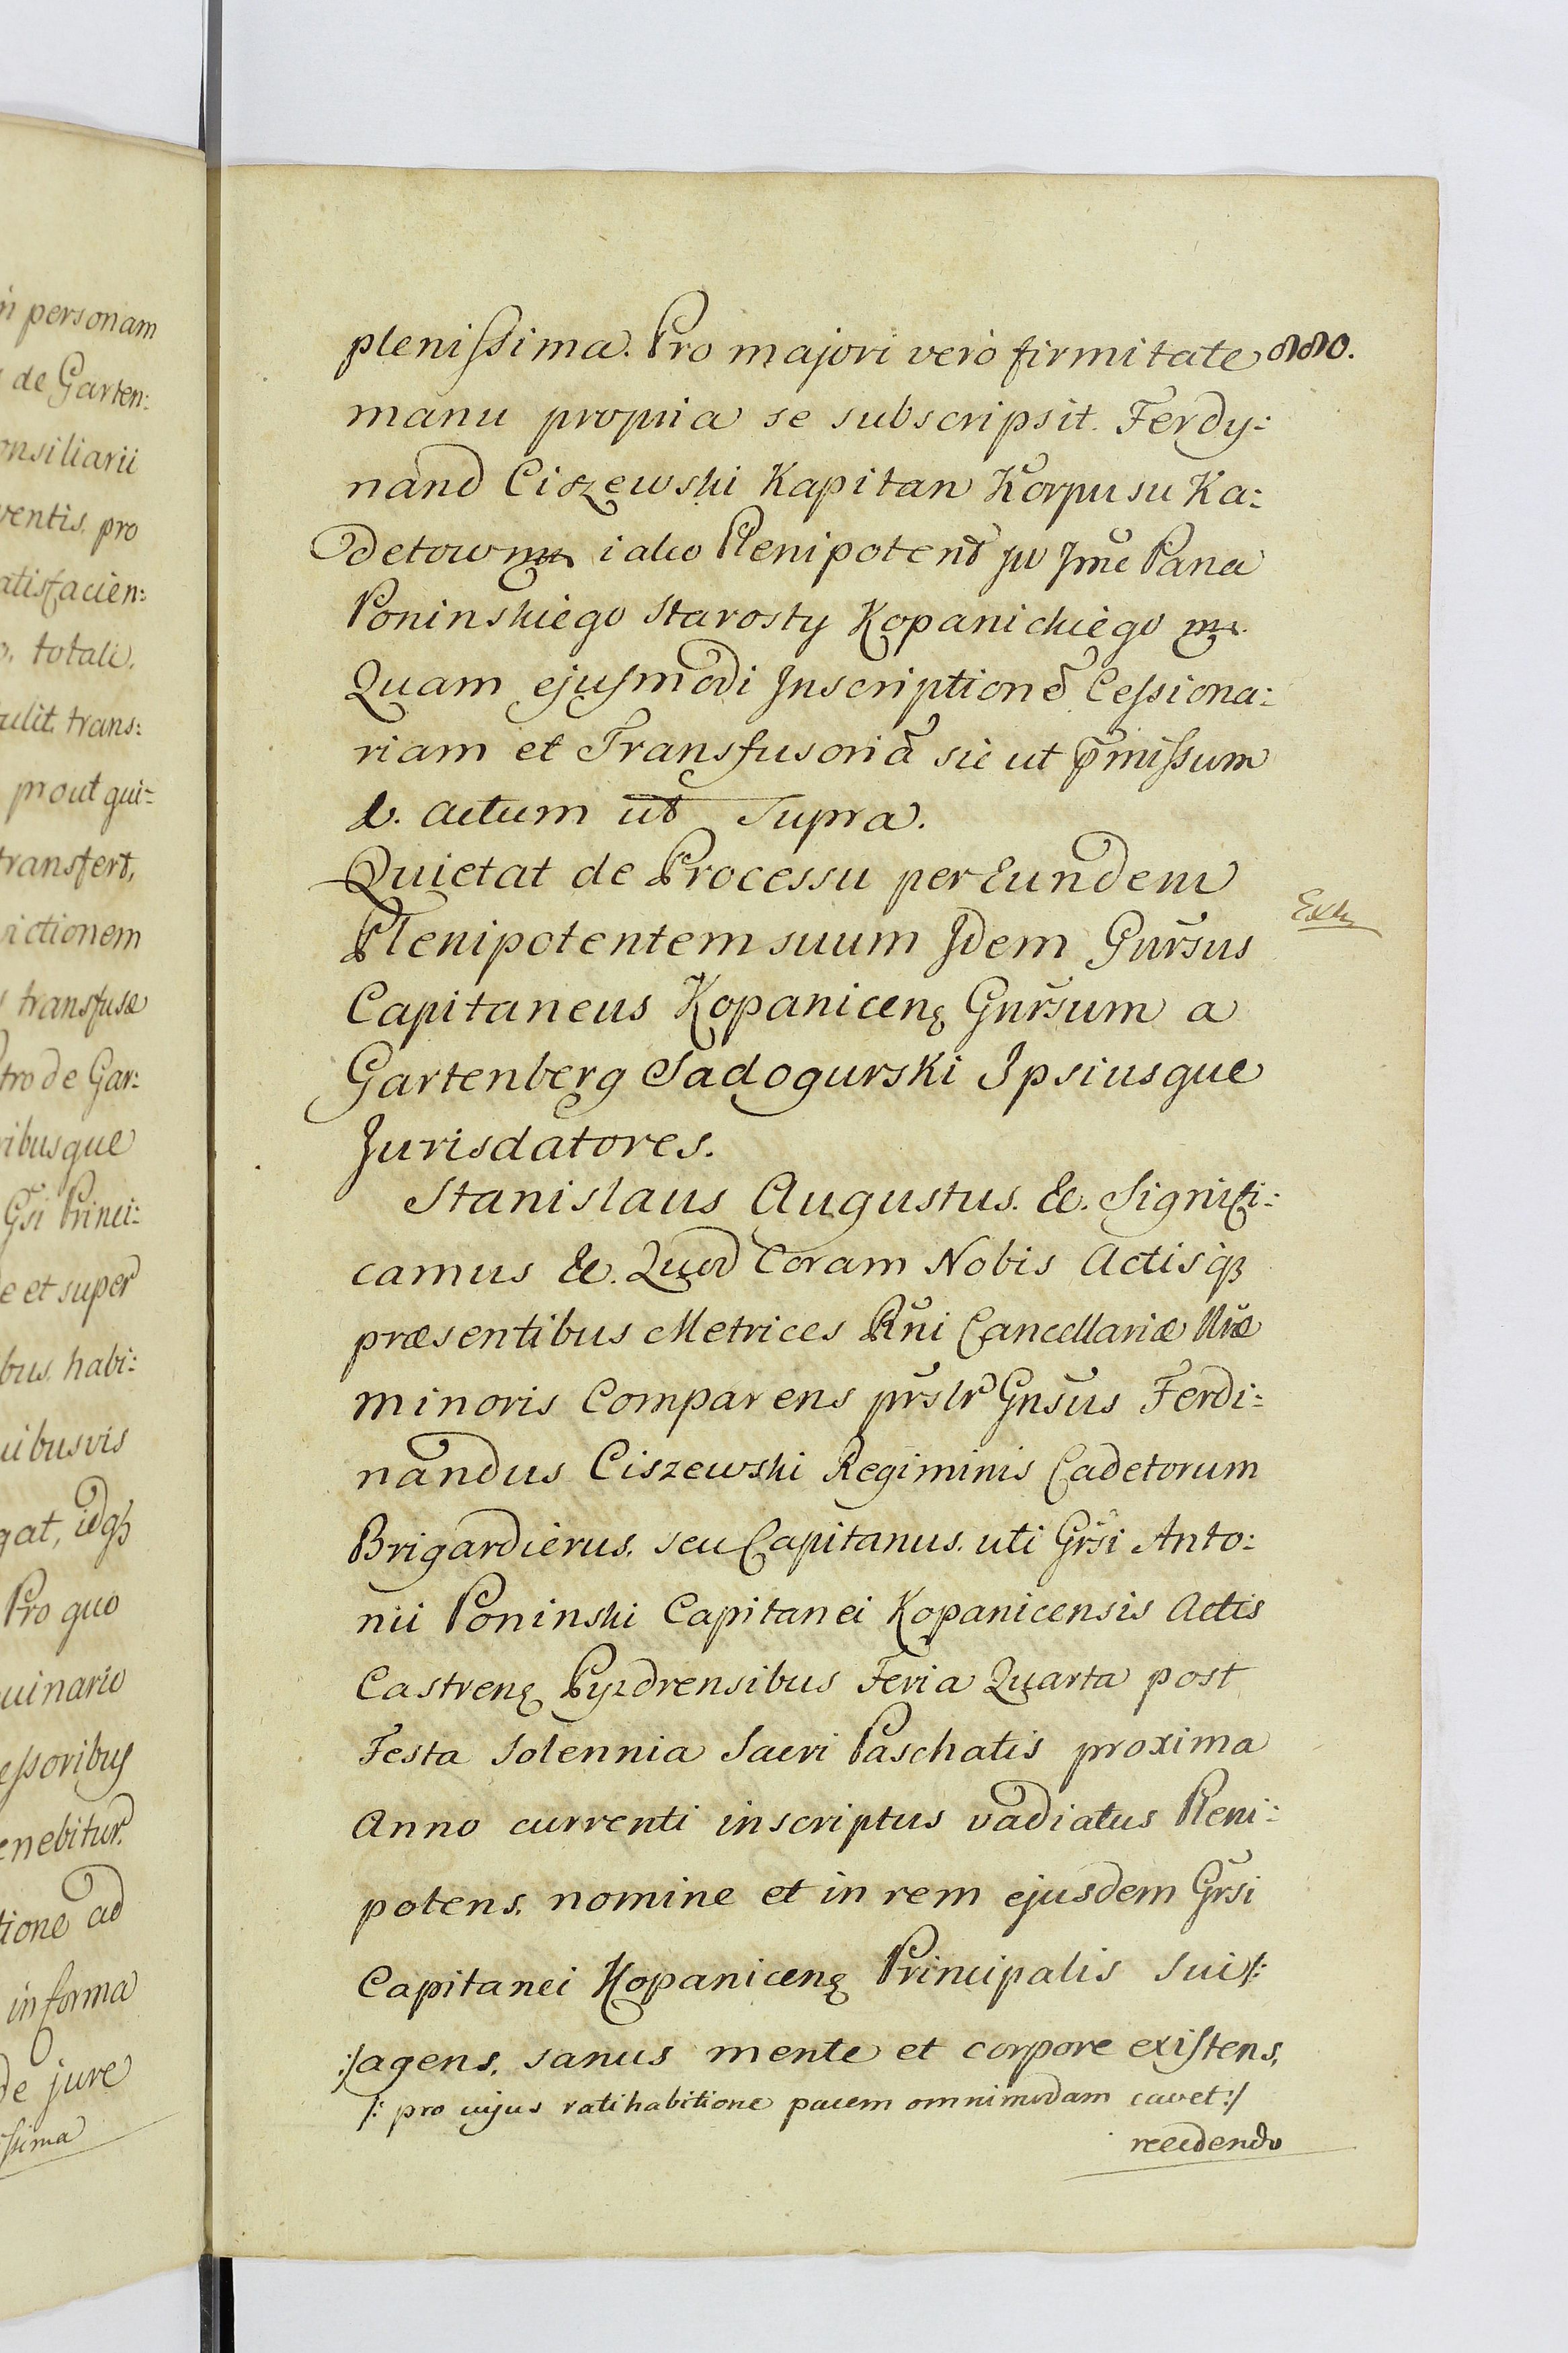 in personam
de Garten:
onsiliarii
ventis. pro
atisfacien:
totali.
tulit. trans:
prout qui:
transfert,
victionem
transfusæ
tro de Gar:
ribusque
Gsi Princi:
e et super
bus. habi:
uibusvis
gat, idqꝫ
Pro quo
uinario
eſsoribus
enebitur.
tione ad
in forma
de jure
ſsima
pleniſsima. Pro majori verò firmitate 880.
manu propria se subscripsit. Ferdy:
nand Ciszewski Kapitan Korpusu Ka:
detow mp iako Plenipotent JW Jmć Pana
Poninskiego Starosty Kopanickiego mp.
Quam ejusmodi Inscriptionē Ceſsiona:
riam et Transfusoriā sic ut p̄miſsum
&. actum ut Supra.
Quietat de Processu per Eundem
Plenipotentem suum Idem Gnrsus
Exh
Capitaneus Kopanicenꝫ Gnrsum a
Gartenberg Sadogurski Ipsiusque
Jurisdatores.
Stanislaus Augustus. &. Signifi:
camus &. Quod Coram Nobis Actisqꝫ
præsentibus Metrices Rñi Cancellariæ Nræ
minoris Comparens prslr Gnsus Ferdi:
nandus Ciszewski Regiminis Cadetorum
Brigardierus. seu Capitanus. uti Grsi Anto:
nii Poninski Capitanei Kopanicensis Actis
Castrenꝫ Pyzdrensibus Feria Quarta post
Festa Solennia Sacri Paschatis proxima
Anno currenti inscriptus vadiatus Pleni:
potens. nomine et in rem ejusdem Grsi
Capitanei Kopanicenꝫ Principalis Sui /:
:/ agens. sanus mente et corpore exiſtens,
/: pro cujus ratihabitione pacem omnimodam cavet :/
recedendo